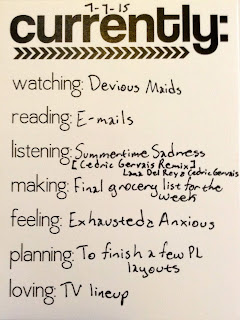 7-7-15
currently:
watching: Devious Maids
reading: E-mails
listening: Summertime Sadness
[Cedric Gervais Remix]
Lana Del Rey & Cedric Gervais
making: Final grocery list for the
week
feeling: Exhausted & Anxious
planning: To finish a few PL
layouts
loving: TV lineup